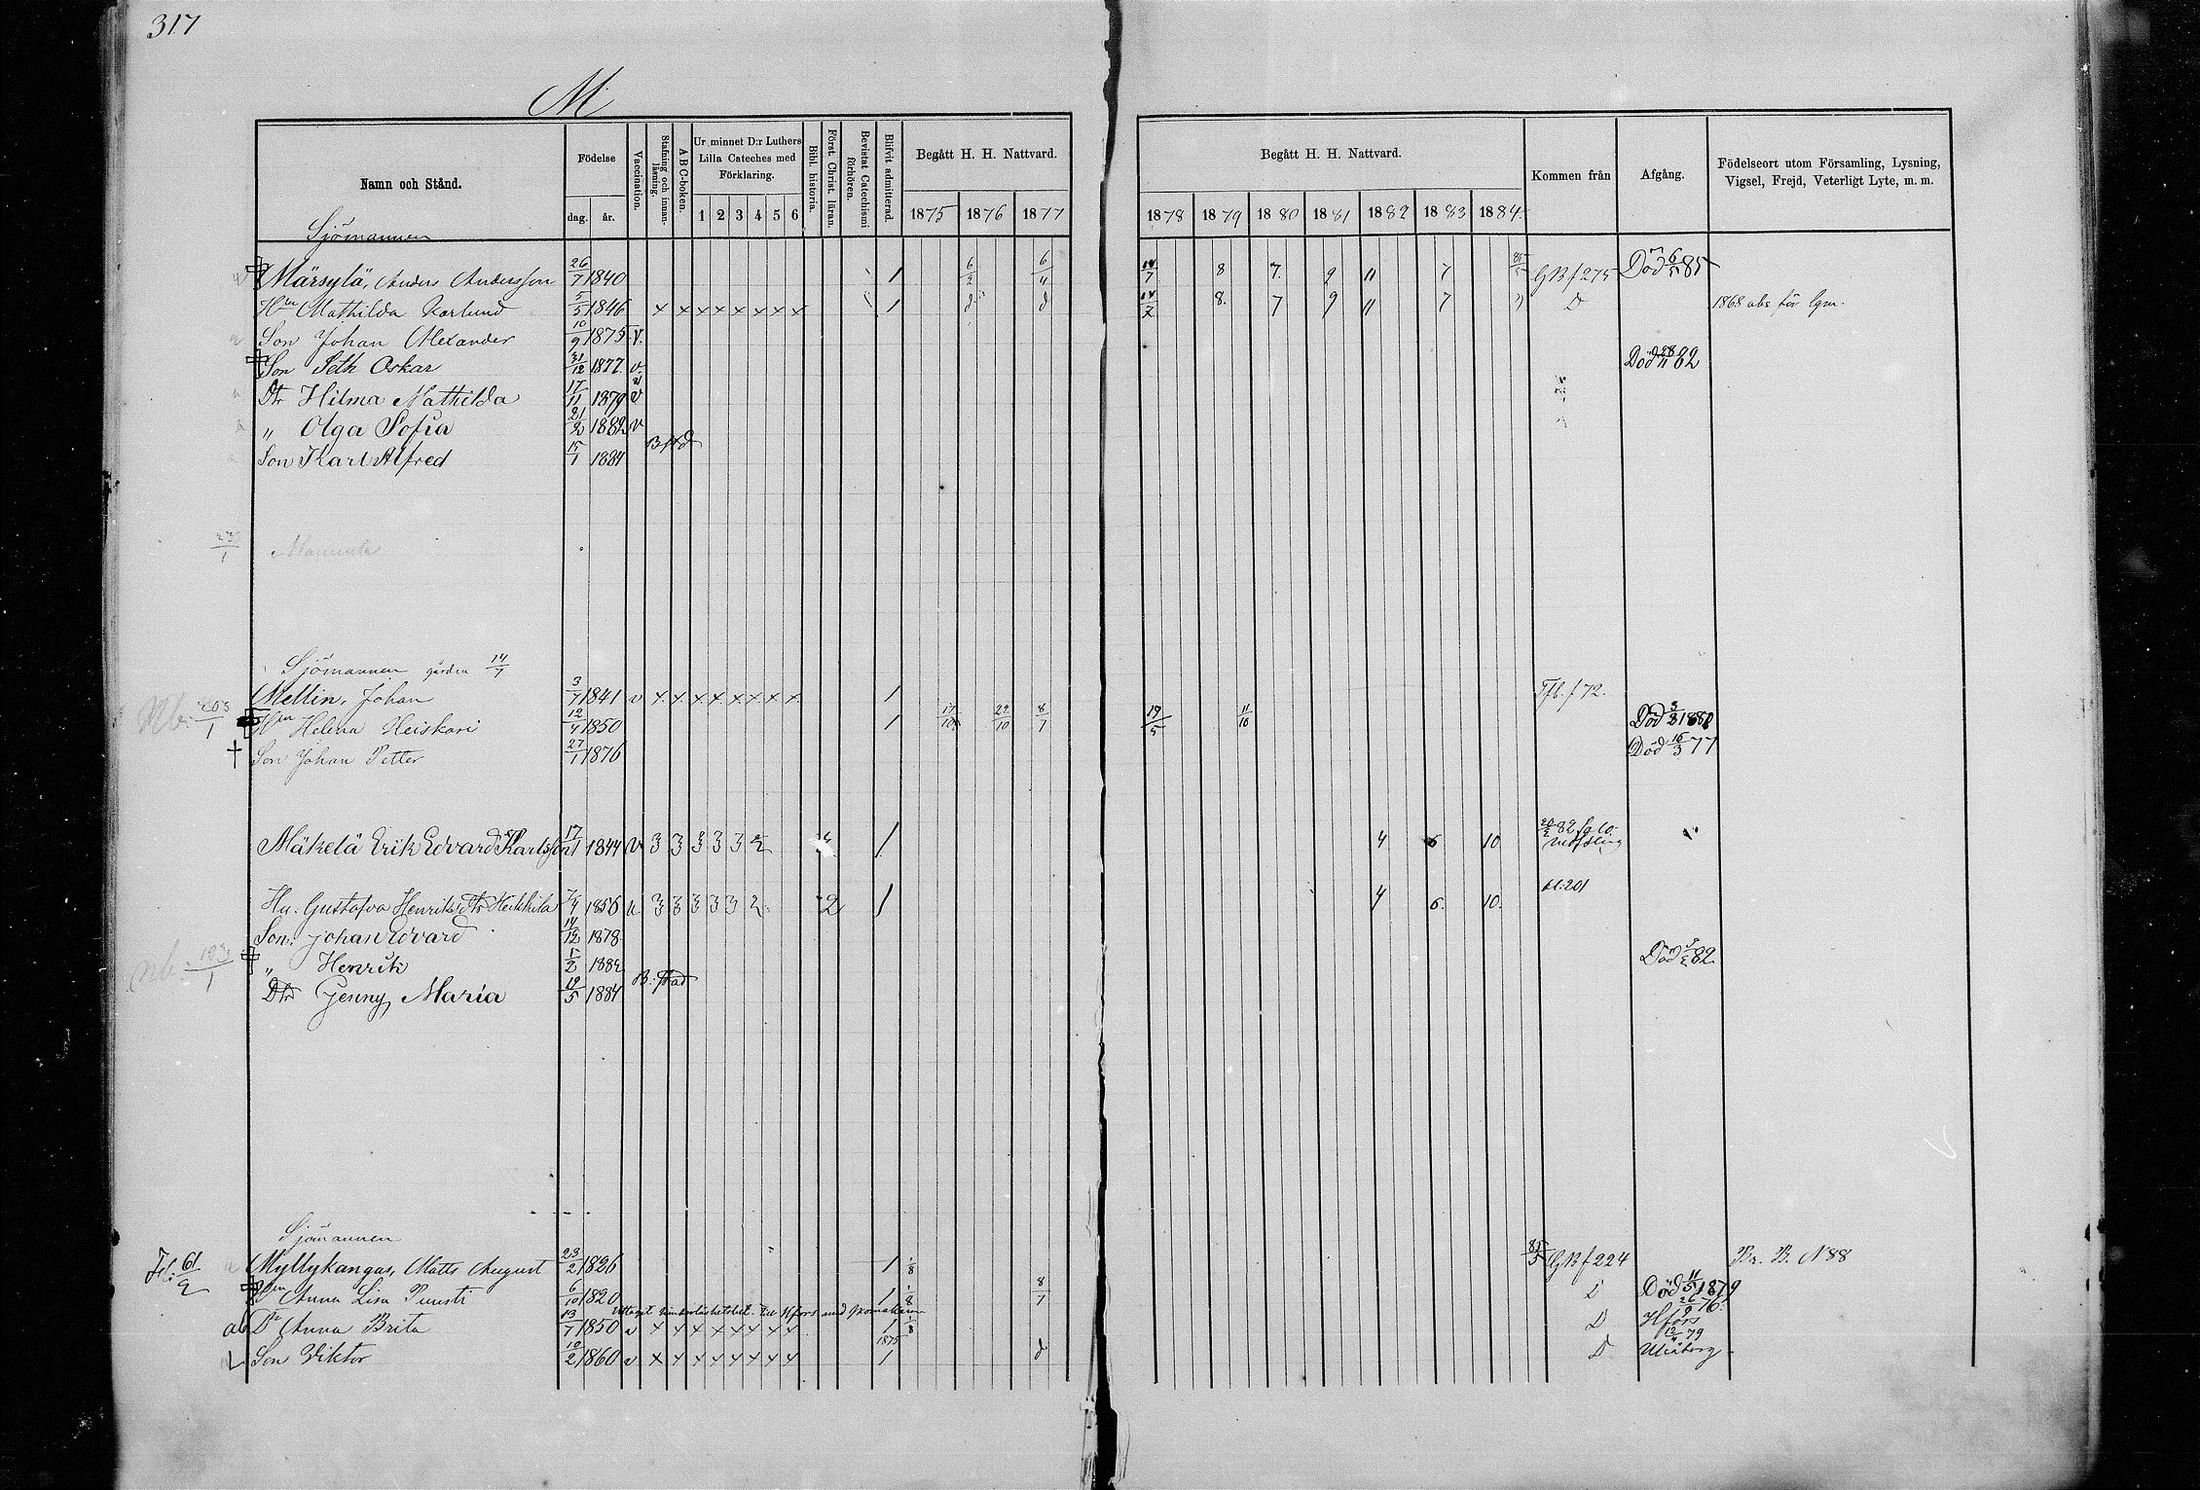 317
M
Namn och Stånd. Födelse dag. år. Vaccination. Stafning och innanläsning. A B C-boken. Ur minnet D:r Luthers Lilla Cateches med Förklaring. 1 2 3 4 5 6 Bibl. historia. Först. Christ. läran. Bevistat Catechismi förhören. Blifvit admitterad. Begått H. H. Nattvard. 1875 1876 1877
Begått H. H. Nattvard. 1878 1879 1880 1881 1882 1883 1884 Kommen från Afgång. Födelseort utom Församling, Lysning, Vigsel, Frejd, Veterligt Lyte, m. m.
Sjömannen
Märsylä, Anders Andersson 26/7 1840 1 6/2 6/11 14/7 8 7. 9 11 7 85/5 GB f 275 Död 6/5 85
Hm Mathilda Karlund 5/5 1846 x x x x x x x x 1 d d 14/7 8. 7 9 11 7 " D 1868 abs för lgm.
Son Johan Alexander 10/9 1875 v.
Son Seth Oskar 31/12 1877 v. Död 28/11 82
Dtr Hilma Mathilda 17/11 1879 v
" Olga Sofia 21/2 1882 v
Son Karl Alfred 15/1 1884 B-stad
23/1 Mannula
Sjömannen gården 14/7
Mellin, Johan 3/7 1841 v x x x x x x x x 1 Tfl. f 72.
Nb. 203/1 Hm Helena Heiskari 12/4 1850 1 17/10 29/10 8/7 19/5 11/10 Död 3/3 188
Son Johan Petter 27/1 1876 Död 16/3 77
Mäkelä Erik Edvard Karlsson 17/1 1844 v 3 3 3 3 3 2 1 4 6 10 20/2 82
Hu. Gustafva Henriksdtr Heikkilä 7/4 1856 v 3 3 3 3 3 2 2 1 4 6. 10. bl. 201
Son: Johan Edvard 14/12 1878
Nb. 193/1 " Henrik 5/2 1882 Död 5/5 82
Dtr Jenny Maria 19/5 1884 B. stad
Sjömannen
Fl. 61/2 Myllykangas, Matts August 23/2 1826 1 1/8 85/5 GB f 224 Br. B. N 88
Hm Anna Lisa Puusti 6/10 1820 1 1/8 8/7 D Död 11/5 1879
Dtr Anna Brita 13/7 1850 v x x x x x x x x 1 1/8 D Hfors 26/9 76.
Son Viktor 10/2 1860 v x x x x x x x x 1875 1 d D Uleåborg 12/4 79